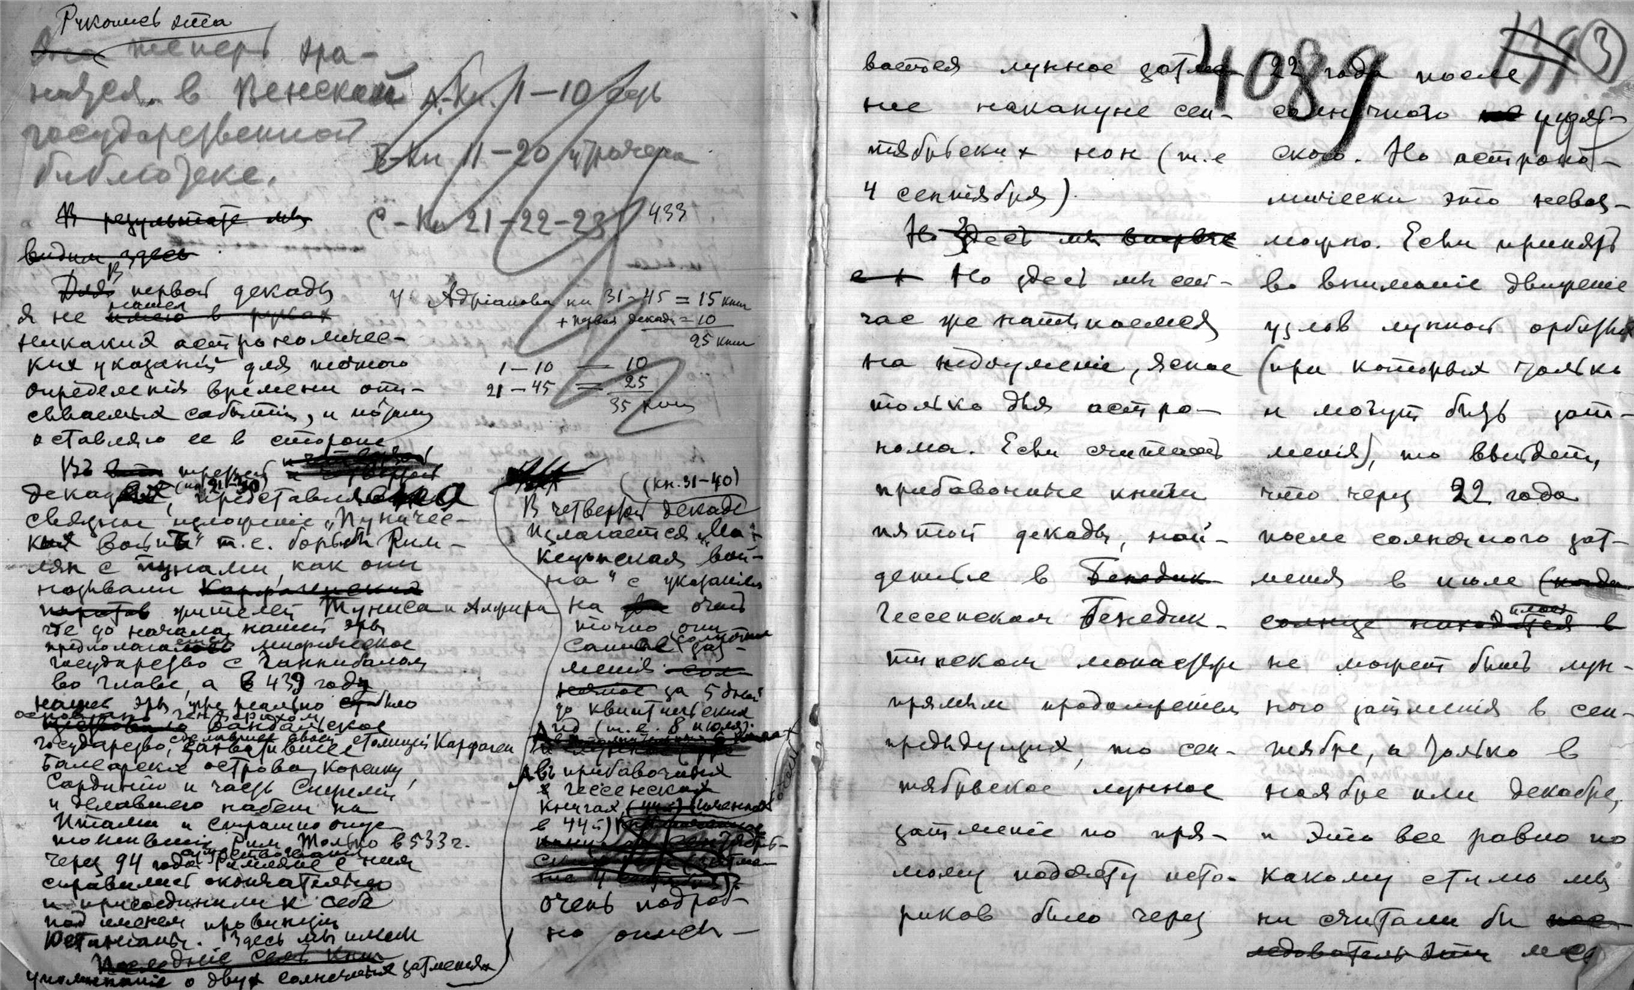 Рукопись эта
теперь хра-
нится в Венской
государственной
библиотеке.
А-Кн. 1-10
В-Кн 11-20 утрачена
С-Кн 21-22-23
433
В результате мы
видим здесь
Для В первой декады
я не нашел имею в руках
никаких астрономичес-
ких указаний для точного
определения времени опи-
сываемых событий, и потому
оставляю ее в стороне
У Адріанова кн 31-45 = 15 книг
+ первой декады = 10
25 книг
1-10 = 10
21-45 = 25
35 книг
Въ третьей
декаде (кн 21-30), представляющей
связное изложеніе „Пуничес-
кия войны" т.е. борьбы Рим-
лян с пунами, как они
называли
жителей Туниса и Алжира
где до начала нашей эры
предполагается мифическое
государство с Ганнибалом
во главе, а в 439 году
нашей эры уже реально было
основано Гензерихом Вандальское
государство, сделавшее своей столицей Карфаген
захватившее
Балеарские острова, Корсику,
Сардинию и часть Сицилии,
и делавшего набеги на
Италию и страшно опус-
тошившее Рим. Только в 533 г.
через 94 года существования римляне с ним
справились окончательно
и присоединили к себе
под именем провинции
Здесь мы имеем
Последние семь книг
упоминание о двух солнечных затмениях
(кн. 31-40)
В четвертой декаде
излагается „Ма-
кедонская вой-
на" с указаніем
на очень
точно описанное солнечное зат-
мения
за 5 дней
до квинтильских
ид (т.е. 8 июля).
А въ прибавочных
к гессенских
книгах
очень подроб-
но описы-
4089
3
вается лунное затме-
ние накануне сен-
тябрьских нон (т.е
4 сентября).
Но здесь мы впервые
Но здесь мы сей-
час же натыкаемся
на недоумение, ясное
только для астро-
нома. Если считать
прибавочные книги
пятой декады, най-
денные в Бенедик-
Гессенском Бенедик-
тинском монастыре
прямым продолжением
предыдущих, то сен-
тябрьское лунное
затмение по пря-
мому подсчету исто-
риков было через
22 года после
солнечного
ского. Но астроно-
мически это невоз-
можно. Если принять
во внимание движение
узлов лунной орбиты
(при которых только
и могут быть зат-
мения), то выйдет,
что через 22 года
после солнечного зат-
мения в июле (когда
солнце находится в
не может быть лун-
ного затмения в сен-
тябре, а только в
ноябре или декабре,
и это все равно по
какому стилю мы
ни считали бы